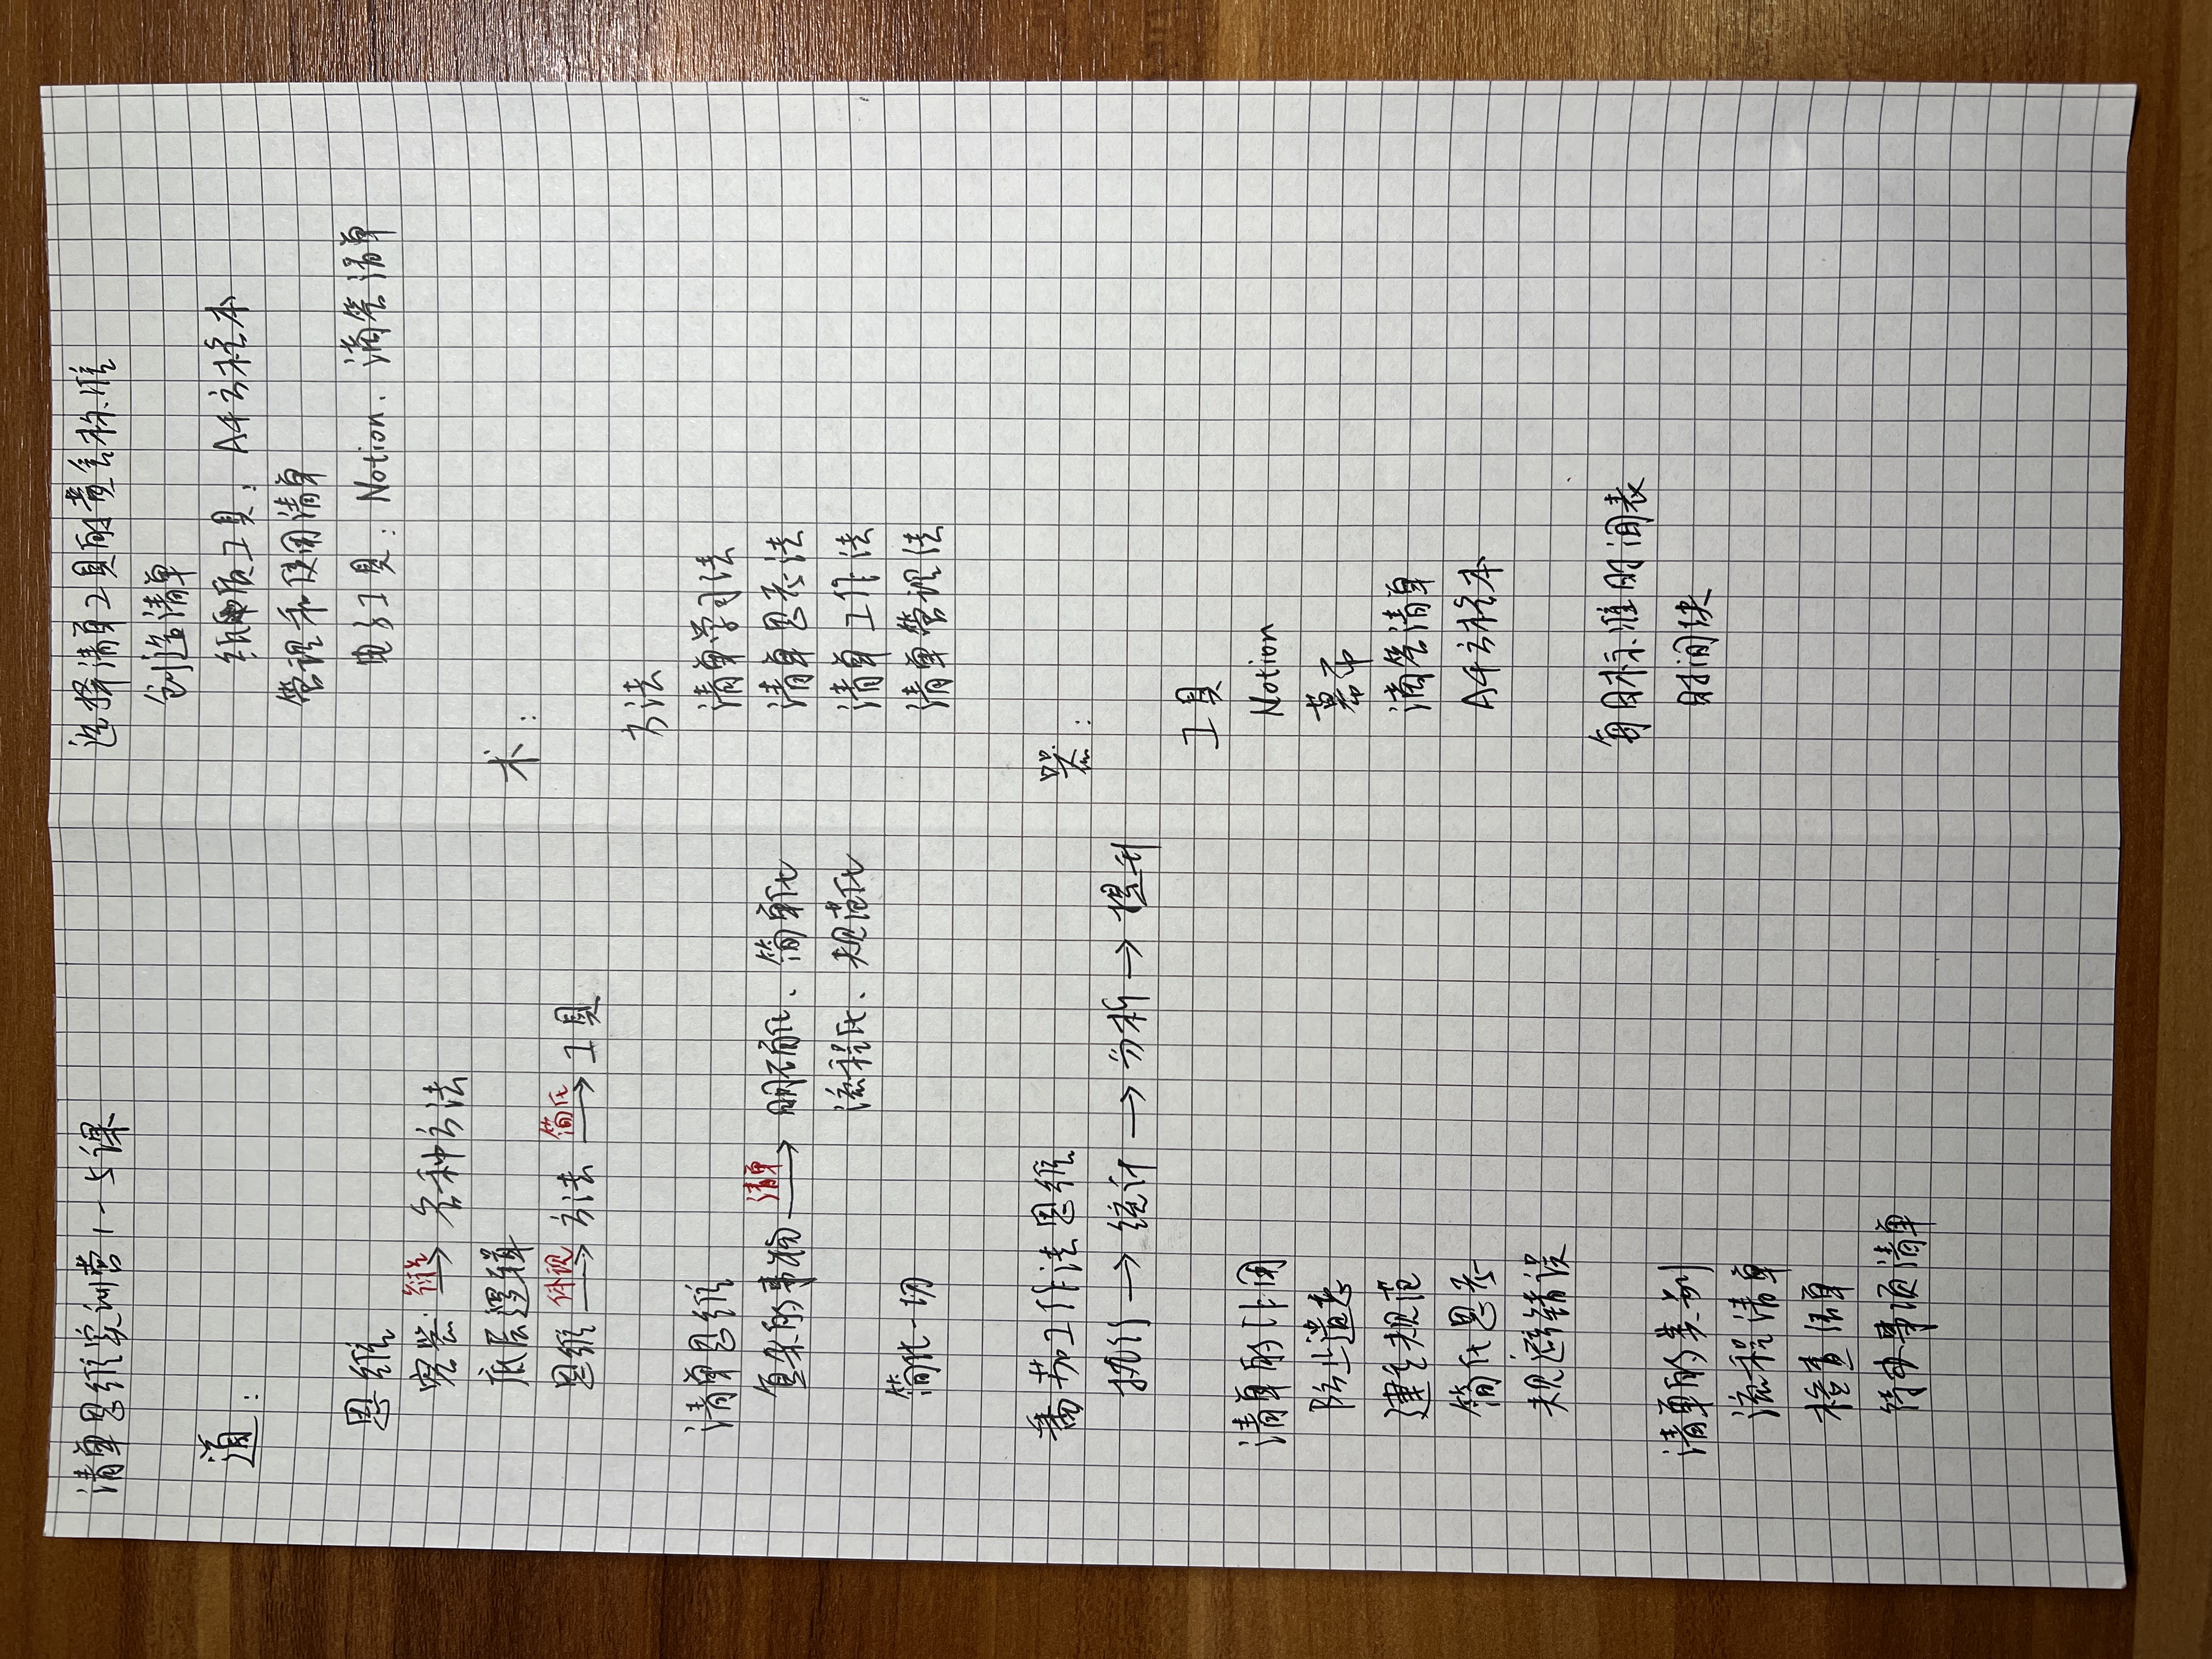 清单思维实训营1-5课
道：
思维
衍化
完整 → 各种方法
底层逻辑
体现 简化
思维 → 方法 → 工具
清单思维
清单
复杂的事物 → 明确化、简单化
流程化、规范化
简化一切
番茄工作法思维
执行 → 统计 → 分析 → 提升
清单的作用
防止遗忘
建立规范
简化思考
规避错误
清单的类别
流程清单
检查清单
待办事项清单
选择清单工具的黄金标准
创造清单
纸质工具：A4方格本
管理和使用清单
电子工具：Notion、滴答清单
术：
方法
清单学习法
清单思考法
清单工作法
清单管理法
器：
工具
Notion
幕布
滴答清单
A4方格本
每日标准时间表
时间块